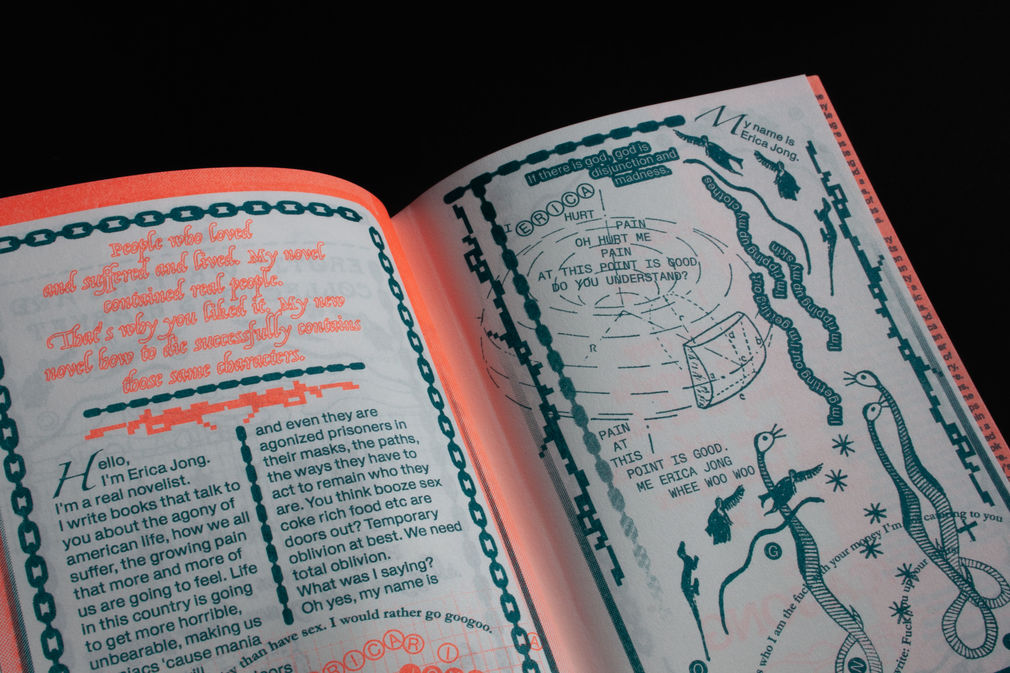 People who loved
and suffered and lived. My novel
contained real people.
That's why you liked it. My new
novel how to die successfully contains
those same characters.
Hello,
I'm Erica Jong.
I'm a real novelist.
I write books that talk to
you about the agony of
american life, how we all
suffer, the growing pain
that more and more of
us are going to feel. Life
in this country is going
to get more horrible,
unbearable, making us
maniacs 'cause mania
will
doors
and even they are
agonized prisoners in
their masks, the paths,
the ways they have to
act to remain who they
are. You think booze sex
coke rich food etc are
doors out? Temporary
oblivion at best. We need
total oblivion.
What was I saying?
Oh yes, my name is
than have sex. I would rather go googoo.
My name is
Erica Jong.
If there is god, god is
disjunction and
madness.
I ERICA
HURT PAIN
OH HURT ME
PAIN
AT THIS POINT IS GOOD
DO YOU UNDERSTAND?
R
a
b
c
PAIN
AT
THIS
POINT IS GOOD.
ME ERICA JONG
WHEE WOO WOO
I'm ripping up my clothes
I'm ripping up my skin
I'm getting out I'm getting
G
N
who I am the
with your money I'm
to you
write: Fuck you up your